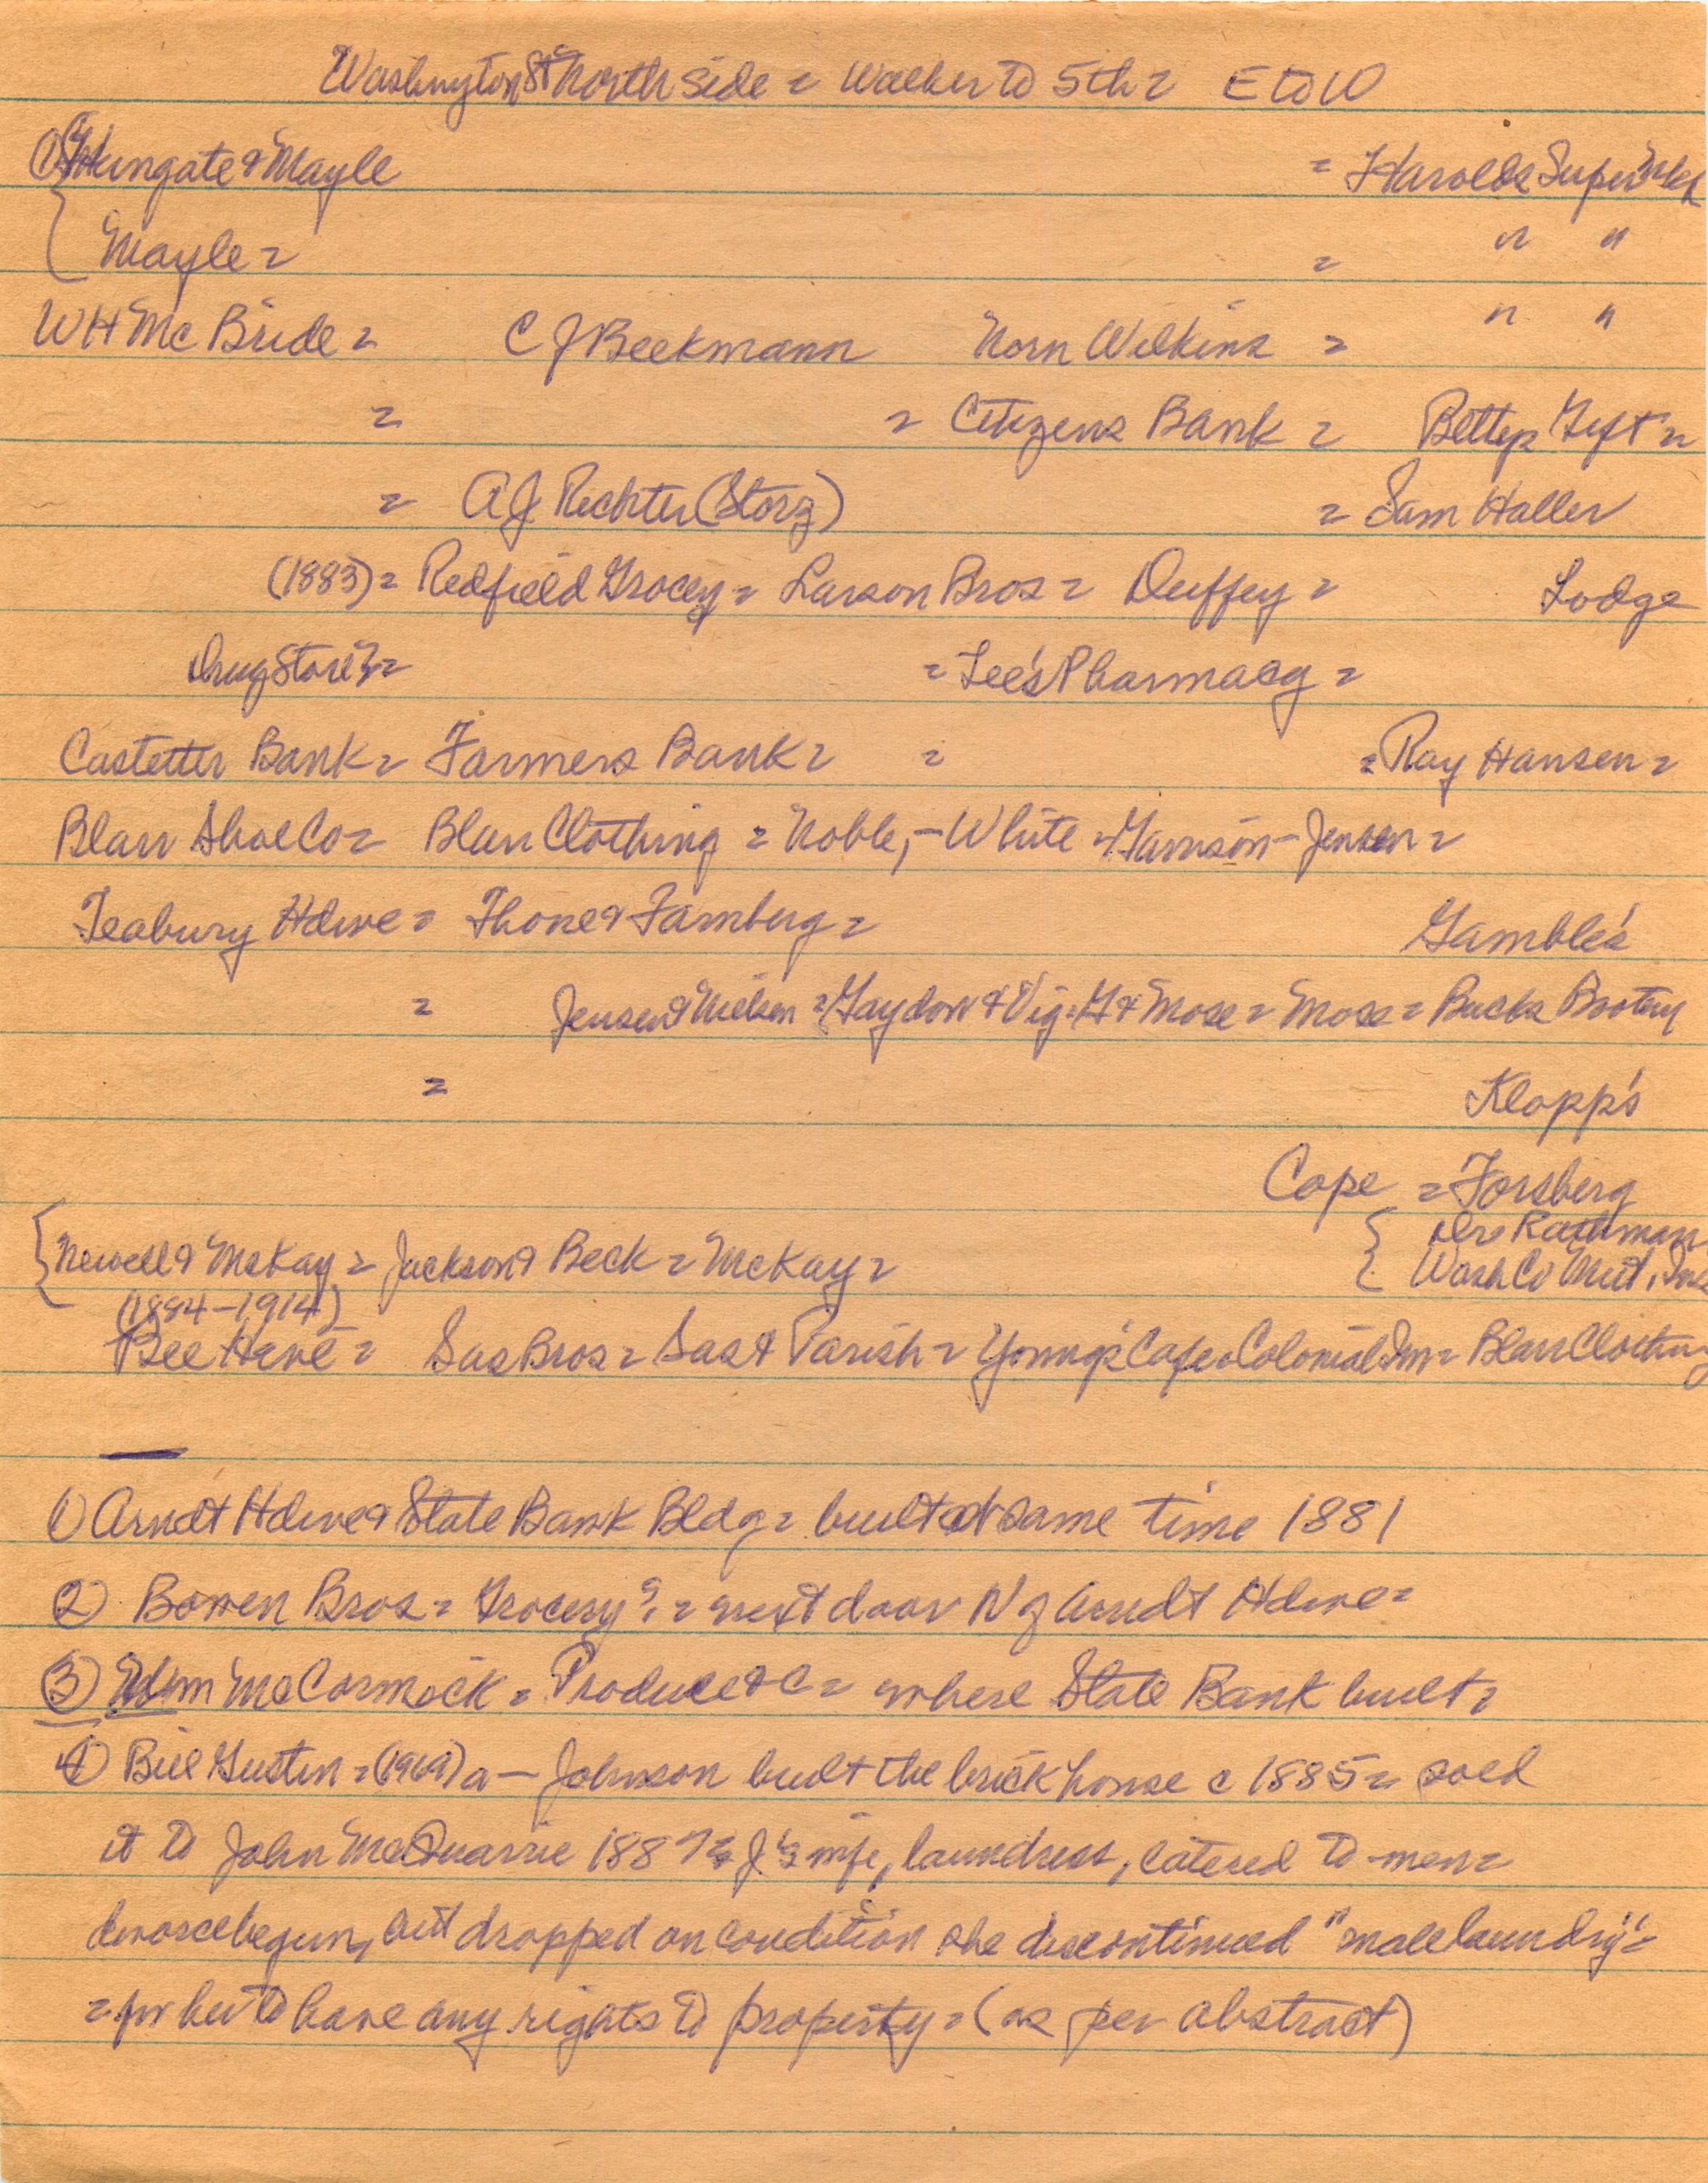 Washington St North Side = Walker to 5th = E to W
(1) Wingate & Mayle = Harolds Super Mkt
Mayle = = " "
WH McBride = C J Beekmann Norn Wilkins = " "
= = Citizens Bank = Bettys Gift =
= A J Richter (Storz) = Sam Haller
(1883) = Redfield Grocey = Larson Bros = Duffey = Lodge
Drug Store? = = Lee's Pharmacy =
Castetter Bank = Farmers Bank = = = Ray Hansen =
Blair Shoe Co = Blair Clothing = Noble, - White - Garrison - Jensen =
Teabury Hdwe = Thone & Farnberg = Gamble's
= Jensen & Nielsen = Gaydou & Vig = G & Mose = Mose = Bucks Bootery
= Klopp's
Cope = Forsberg
Drs Rathman
Newell & McKay = Jackson & Beck = McKay = Wash Co Mut. Ins
(1884-1914)
Bee Hive = Sas Bros = Sas & Parish = Young's Cafe = Colonial Inn = Blair Clothing
1) Arndt Hdwe & State Bank Bldg = built at same time 1881
2) Bowen Bros = Grocery? = next door N of Arndt Hdwe =
3) Wm McCormick = Produce &C = where State Bank built =
4) Bill Gustin = (1969) a - Johnson built the brick house c 1885 = sold
it to John McQuarrie 1887 = J.'s wife, laundress, catered to men =
divorce begun, but dropped on condition she discontinued "male laundry" =
= for her to have any rights to property = (as per abstract)